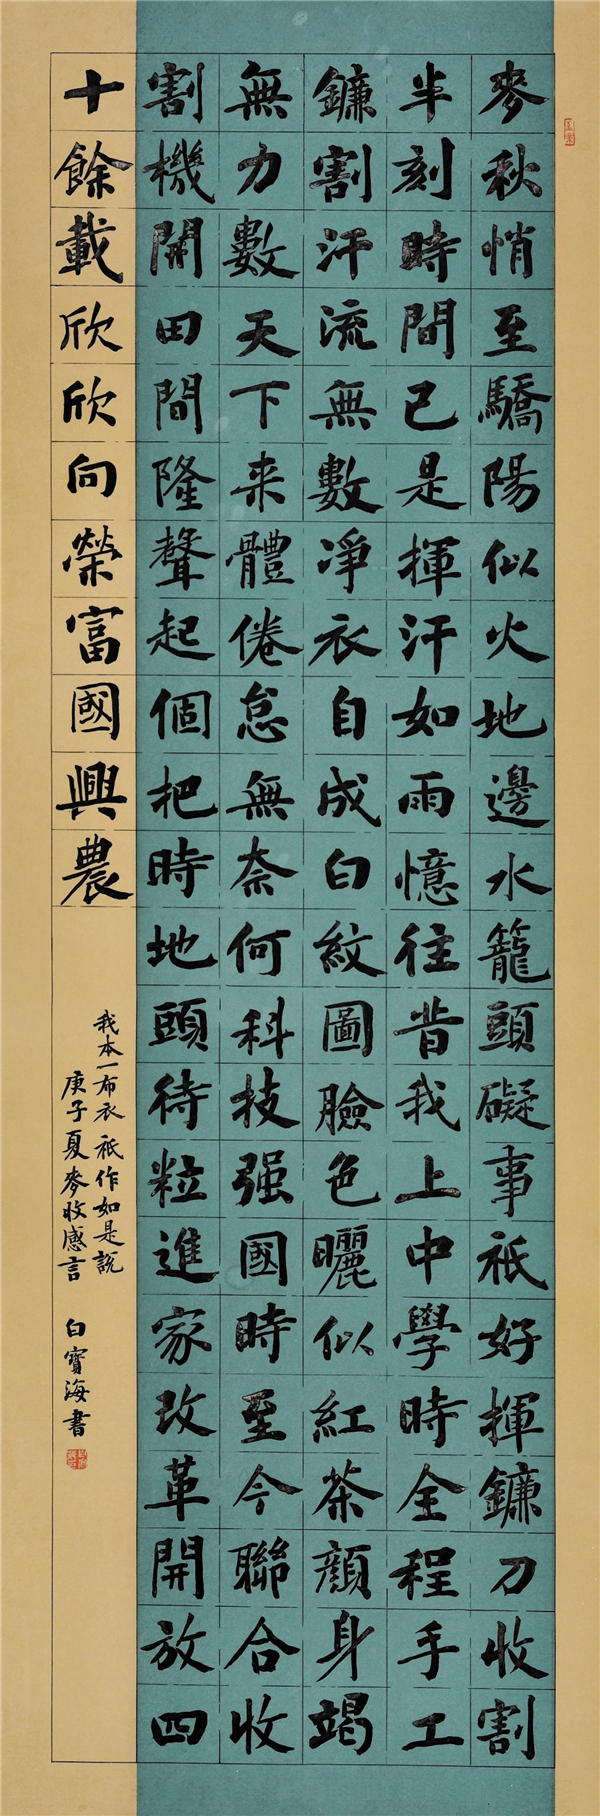 麥秋悄至驕陽似火地邊水籠頭礙事祇好揮鐮刀收割
半刻時間已是揮汗如雨憶往昔我上中學時全程手工
鐮割汗流無數淨衣自成白紋圖臉色曬似紅茶顏身竭
無力數天下来體倦怠無奈何科技强國時至今聯合收
割機開田間隆聲起個把時地頭待粒進家改革開放四
十餘載欣欣向榮富國興農
我本一布衣祇作如是說
庚子夏麥收感言 白寶海書